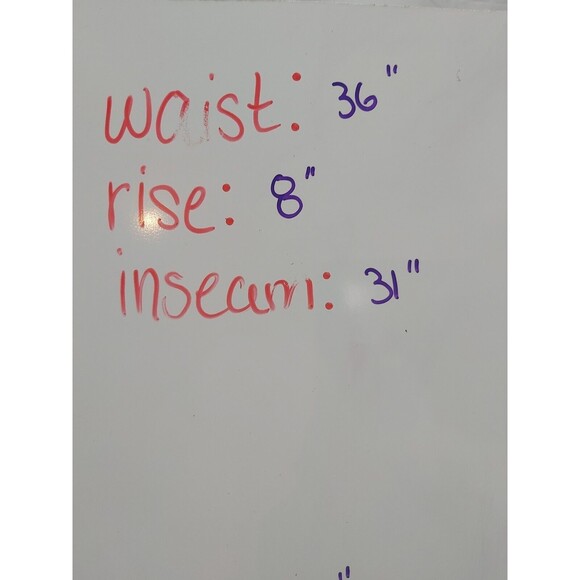 waist: 36"
rise: 8"
inseam: 31"
"